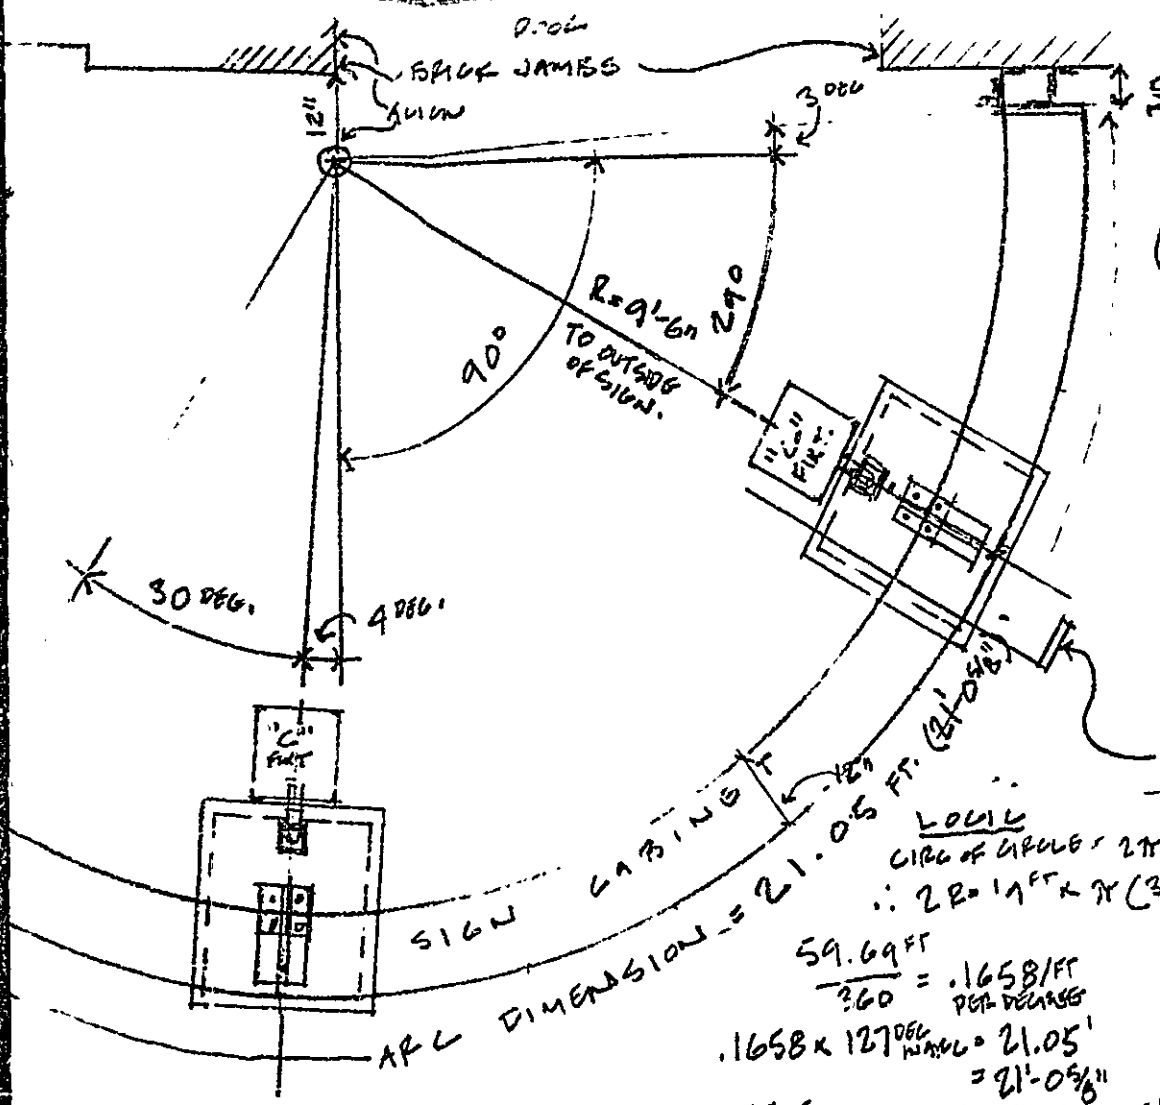 DOOR
BRICK JAMBS
ALIGN
12"
3 DEG
R=9'-6"
TO OUTSIDE
OF SIGN.
290
90°
30 DEG.
4 DEG.
"C"
FIXT.
"C"
FIXT
12"
SIGN CABINET
ARC DIMENSION = 21.05 FT. (21'-0 5/8")
LOGIC
CIRC OF CIRCLE = 2π
∴ 2R = 19 FT x π (3
59.69 FT
360
= .1658/FT
PER DEGREE
.1658 x 127 DEG = 21.05'
= 21'-0 5/8"